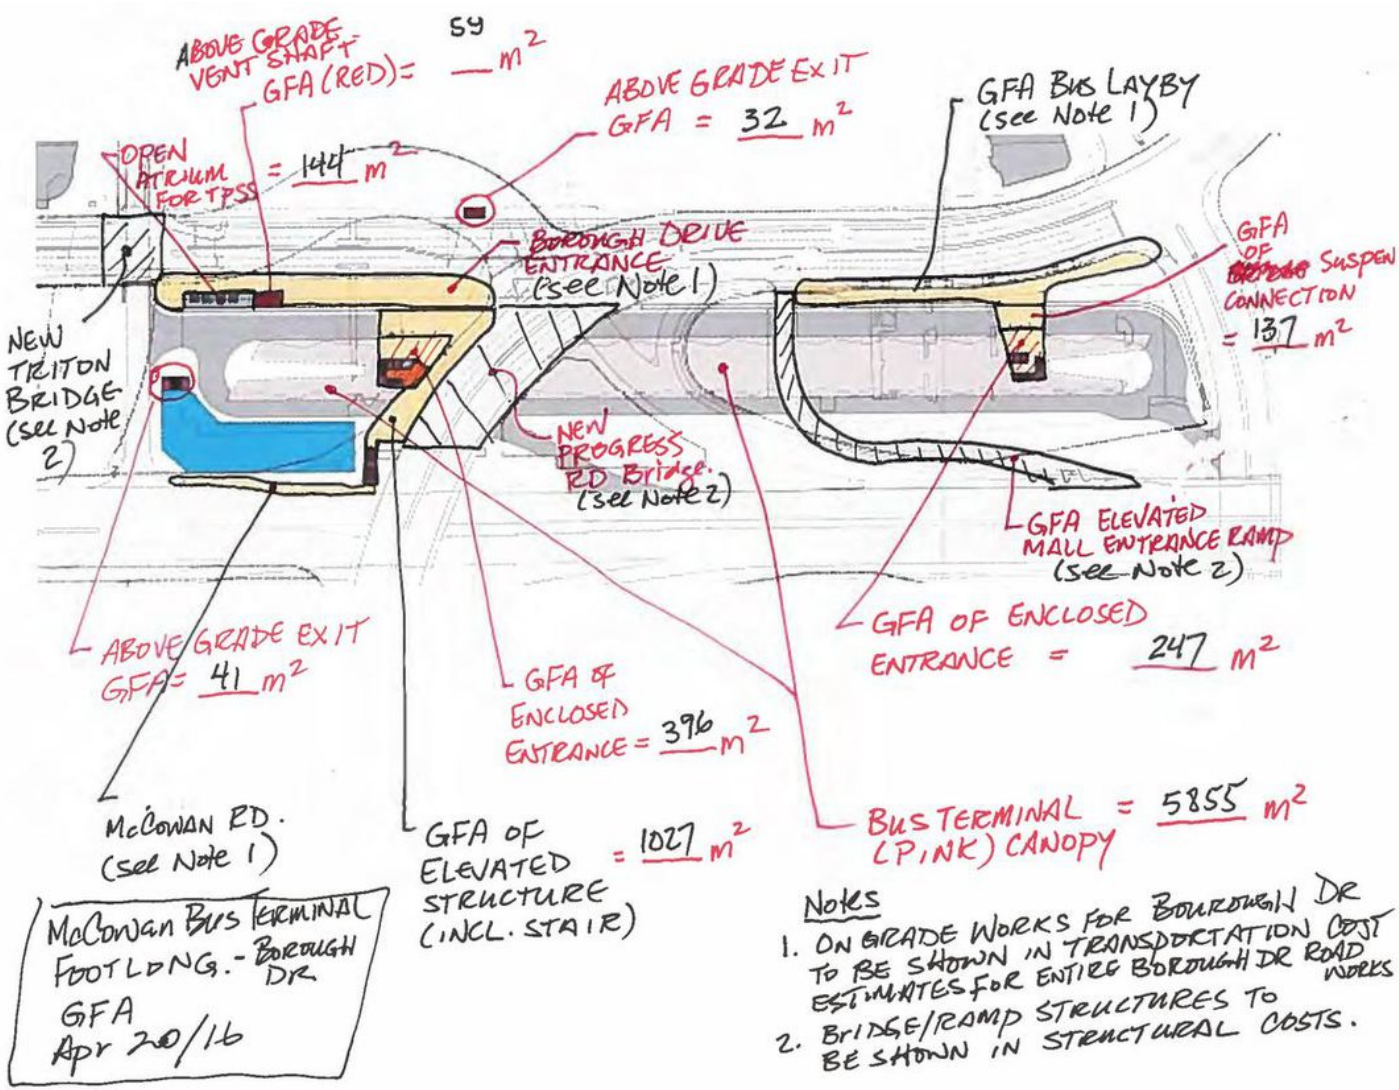 ABOVE GRADE
VENT SHAFT
GFA (RED) = 59 m²
ABOVE GRADE EXIT
GFA = 32 m²
GFA BUS LAYBY
(see Note 1)
OPEN
ATRIUM
FOR TPSS
= 144 m²
BOROUGH DRIVE
ENTRANCE
(see Note 1)
GFA
OF
SUSPEN
CONNECTION
= 137 m²
NEW
TRITON
BRIDGE
(see Note
2)
NEW
PROGRESS
RD Bridge.
(see Note 2)
GFA ELEVATED
MALL ENTRANCE RAMP
(see Note 2)
ABOVE GRADE EXIT
GFA = 41 m²
GFA OF
ENCLOSED
ENTRANCE = 396 m²
GFA OF ENCLOSED
ENTRANCE = 247 m²
McCOWAN RD.
(see Note 1)
GFA OF
ELEVATED
STRUCTURE
(INCL. STAIR)
= 1027 m²
BUS TERMINAL
(PINK) CANOPY
= 5855 m²
McCowan Bus TERMINAL
FOOTLONG. - BOROUGH
DR
GFA
Apr 20/16
Notes
1. ON GRADE WORKS FOR BOUROUGH DR
TO BE SHOWN IN TRANSPORTATION COST
ESTIMATES FOR ENTIRE BOROUGH DR ROAD
WORKS
2. BRIDGE/RAMP STRUCTURES TO
BE SHOWN IN STRUCTURAL COSTS.